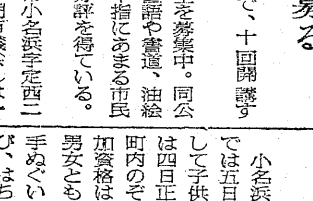 募る
で、十回開講す
を募集中。同公
語や書道、油絵
指にあまる市民
評を得ている。
小名浜字定西二
小名浜
では五日
して子供
は四日正
町内のぞ
加資格は
男女とも
手ぬぐい
び、はち